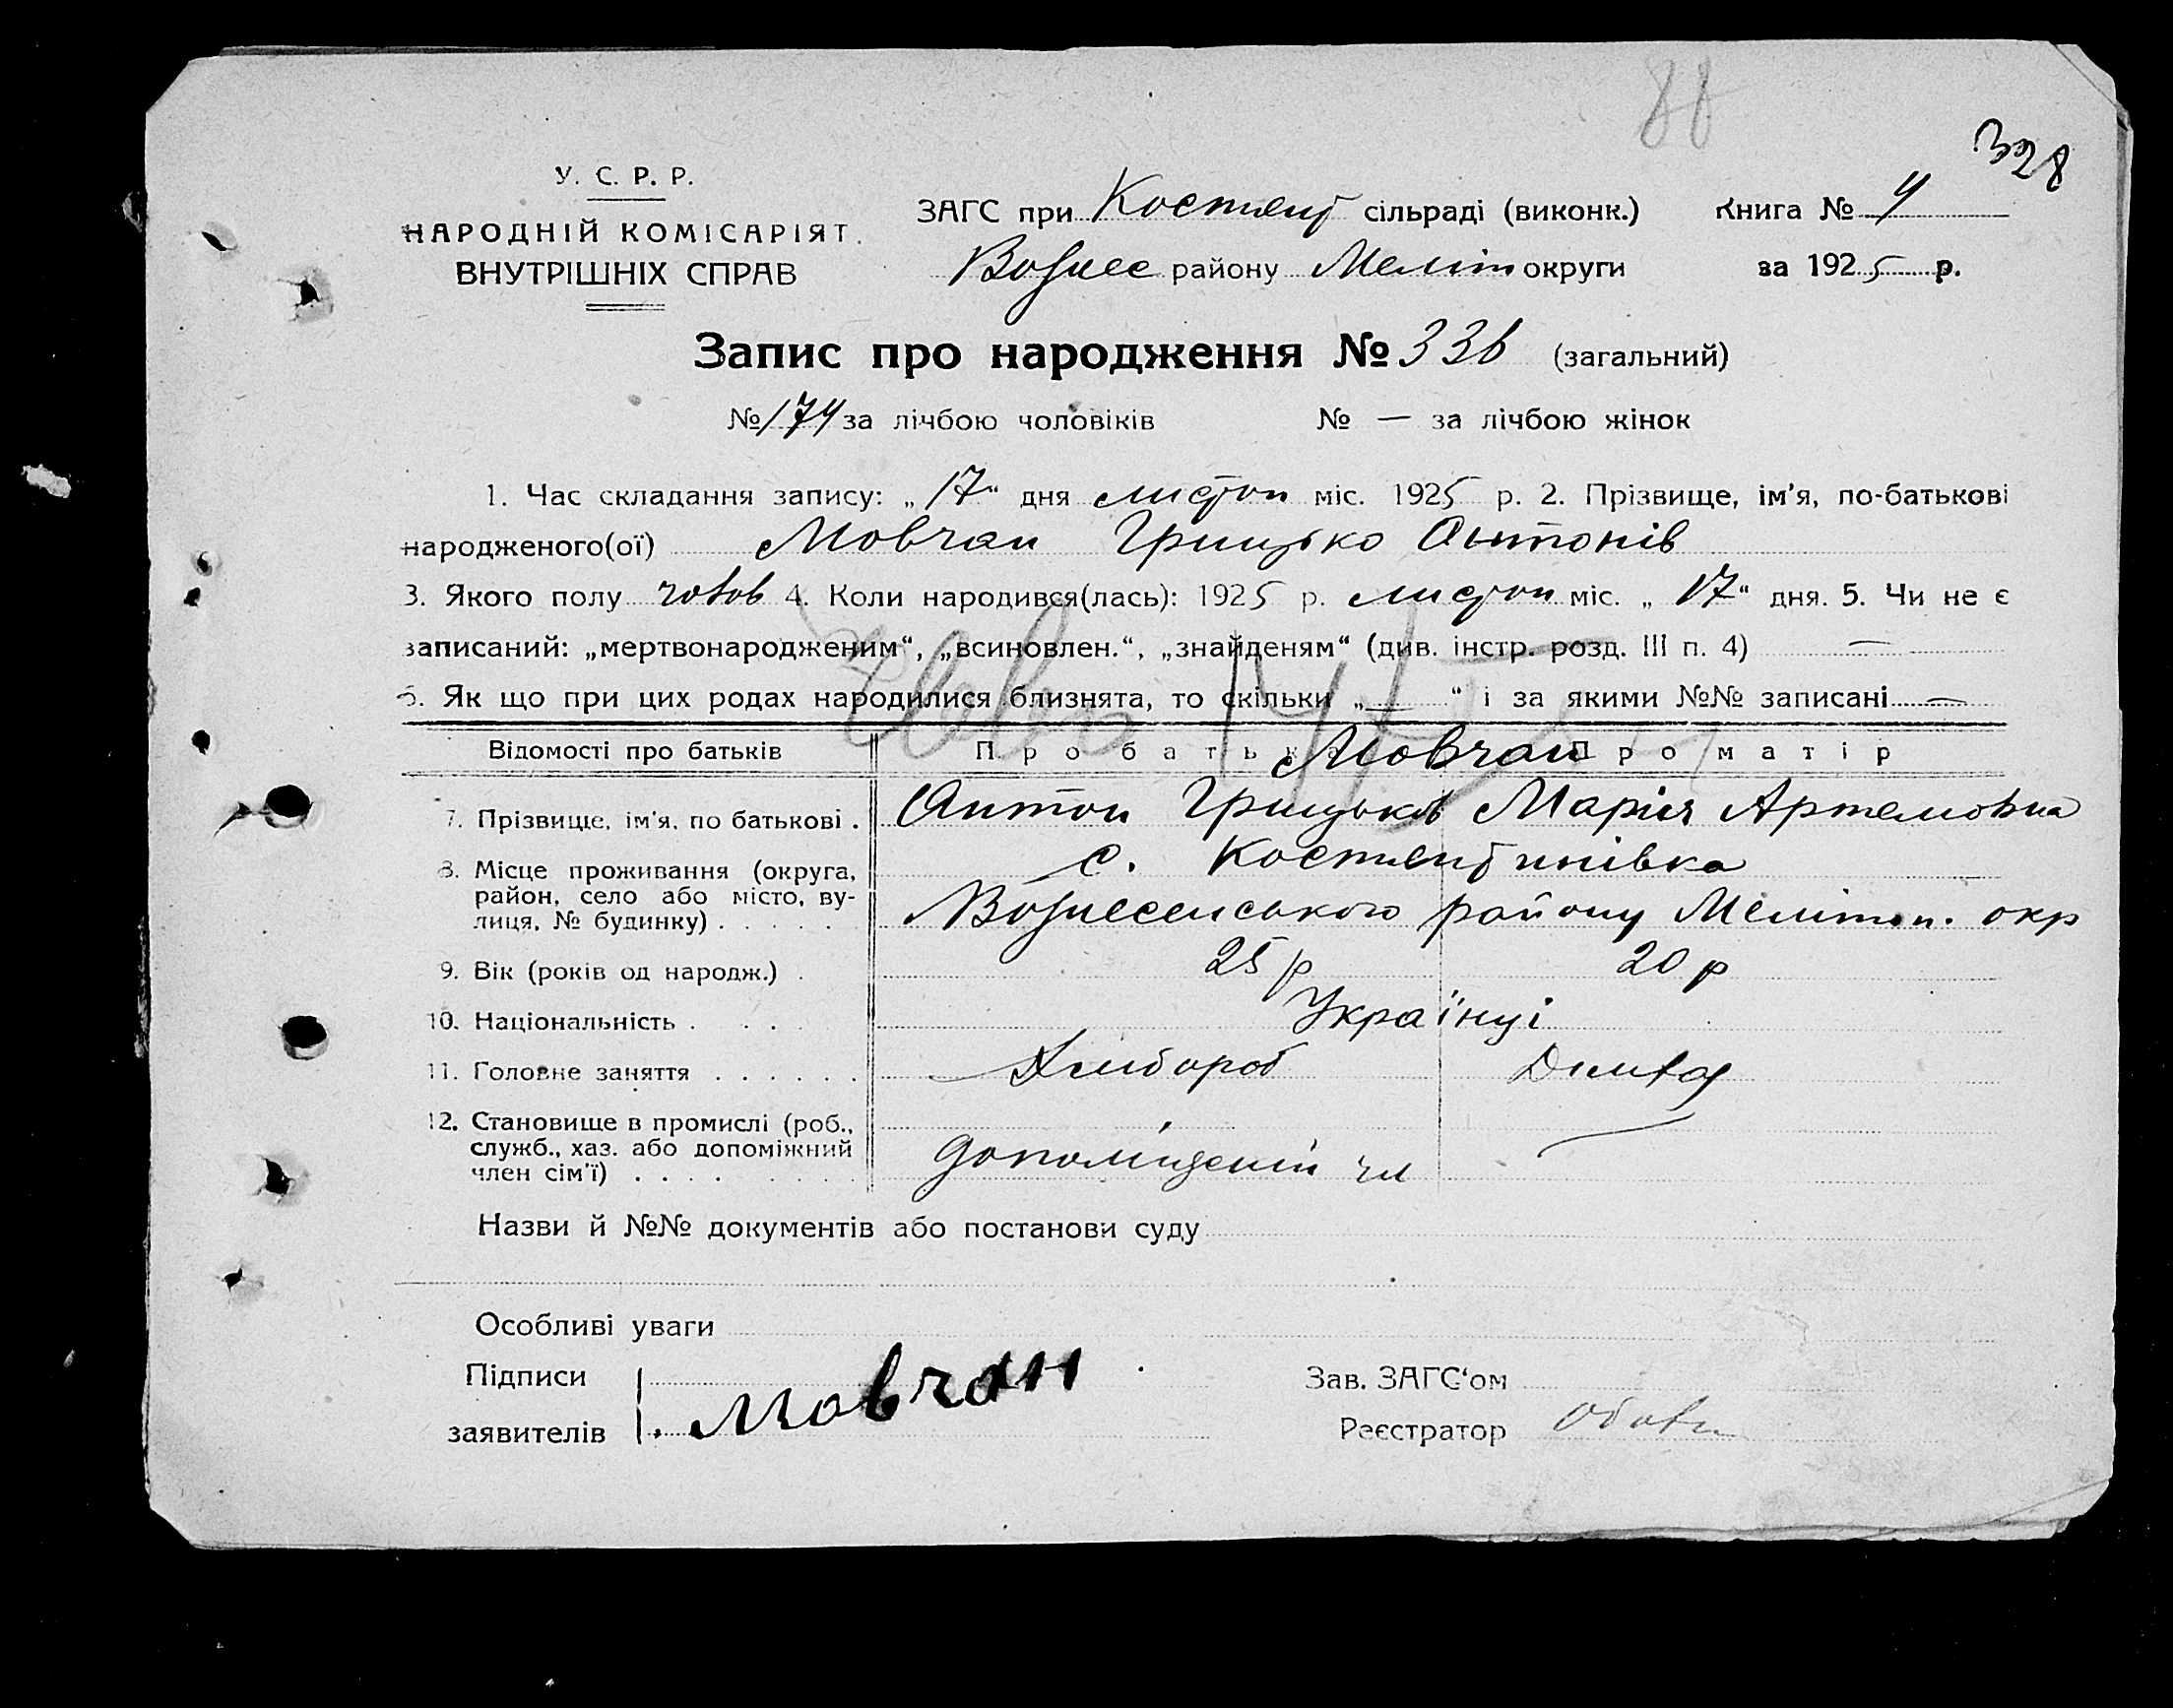 88
328
У. С. Р. Р.
НАРОДНІЙ КОМІСАРІЯТ
ВНУТРІШНІХ СПРАВ
ЗАГС при Костянт сільраді (виконк.) Книга № 4
Вознес району Меліт округи за 1925 р.
Запис про народження № 336 (загальний)
№ 174 за лічбою чоловіків № — за лічбою жінок
1. Час складання запису: „17“ дня листоп міс. 1925 р. 2. Прізвище, ім'я, по-батькові
народженого(ої) Мовчан Грицько Антонів
3. Якого полу чолов 4. Коли народився(лась): 1925 р. листоп міс. „17“ дня. 5. Чи не є
записаний: „мертвонародженим“, „всиновлен.“, „знайденям“ (див. інстр. розд. III п. 4) —
6. Як що при цих родах народилися близнята, то скільки „—“ і за якими №№ записані —
Відомості про батьків Про батька Мовчан Про матір
7. Прізвище, ім'я, по батькові . Антон Грицьків Марія Артемовна
8. Місце проживання (округа, с. Костянтинівка
район, село або місто, ву-
лиця, № будинку) . . . . . Вознесенського району Мелітоп. окр
9. Вік (років од народж.) . 25 р 20 р
10. Національність . . . Українці
11. Головне заняття . . . . . . Хлібороб Домгос
12. Становище в промислі (роб.,
служб., хаз. або допоміжний допоміжний чл —
член сім'ї) . . . . . . . .
Назви й №№ документів або постанови суду
Особливі уваги
Підписи Зав. ЗАГС‘ом
заявителів Мовчан Реєстратор